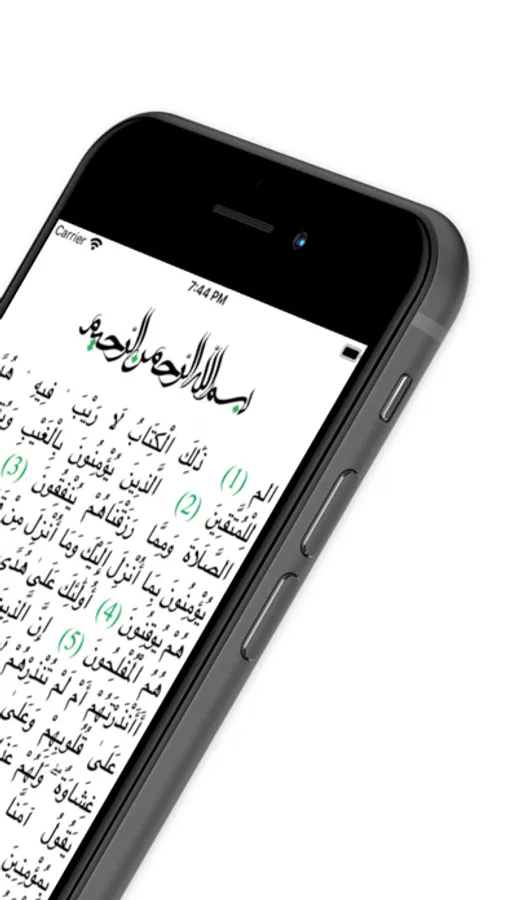 Carrier
7:44 PM
بسم الله الرحمن الرحيم
الم (1) ذَلِكَ الْكِتَابُ لَا رَيْبَ فِيهِ
لِّلْمُتَّقِينَ (2) الَّذِينَ يُؤْمِنُونَ بِالْغَيْبِ
الصَّلَاةَ وَمِمَّا رَزَقْنَاهُمْ يُنْفِقُونَ (3)
يُؤْمِنُونَ بِمَا أُنْزِلَ إِلَيْكَ وَمَا أُنْزِلَ مِنْ
هُمْ يُوقِنُونَ (4) أُولَئِكَ عَلَى هُدًى
هُمُ الْمُفْلِحُونَ (5) إِنَّ الَّذِينَ
أَأَنْذَرْتَهُمْ أَمْ لَمْ تُنْذِرْهُمْ
عَلَى قُلُوبِهِمْ وَعَلَى
غِشَاوَةٌ وَلَهُمْ
يَقُولُ آمَنَّا
بِمُؤْمِنِينَ